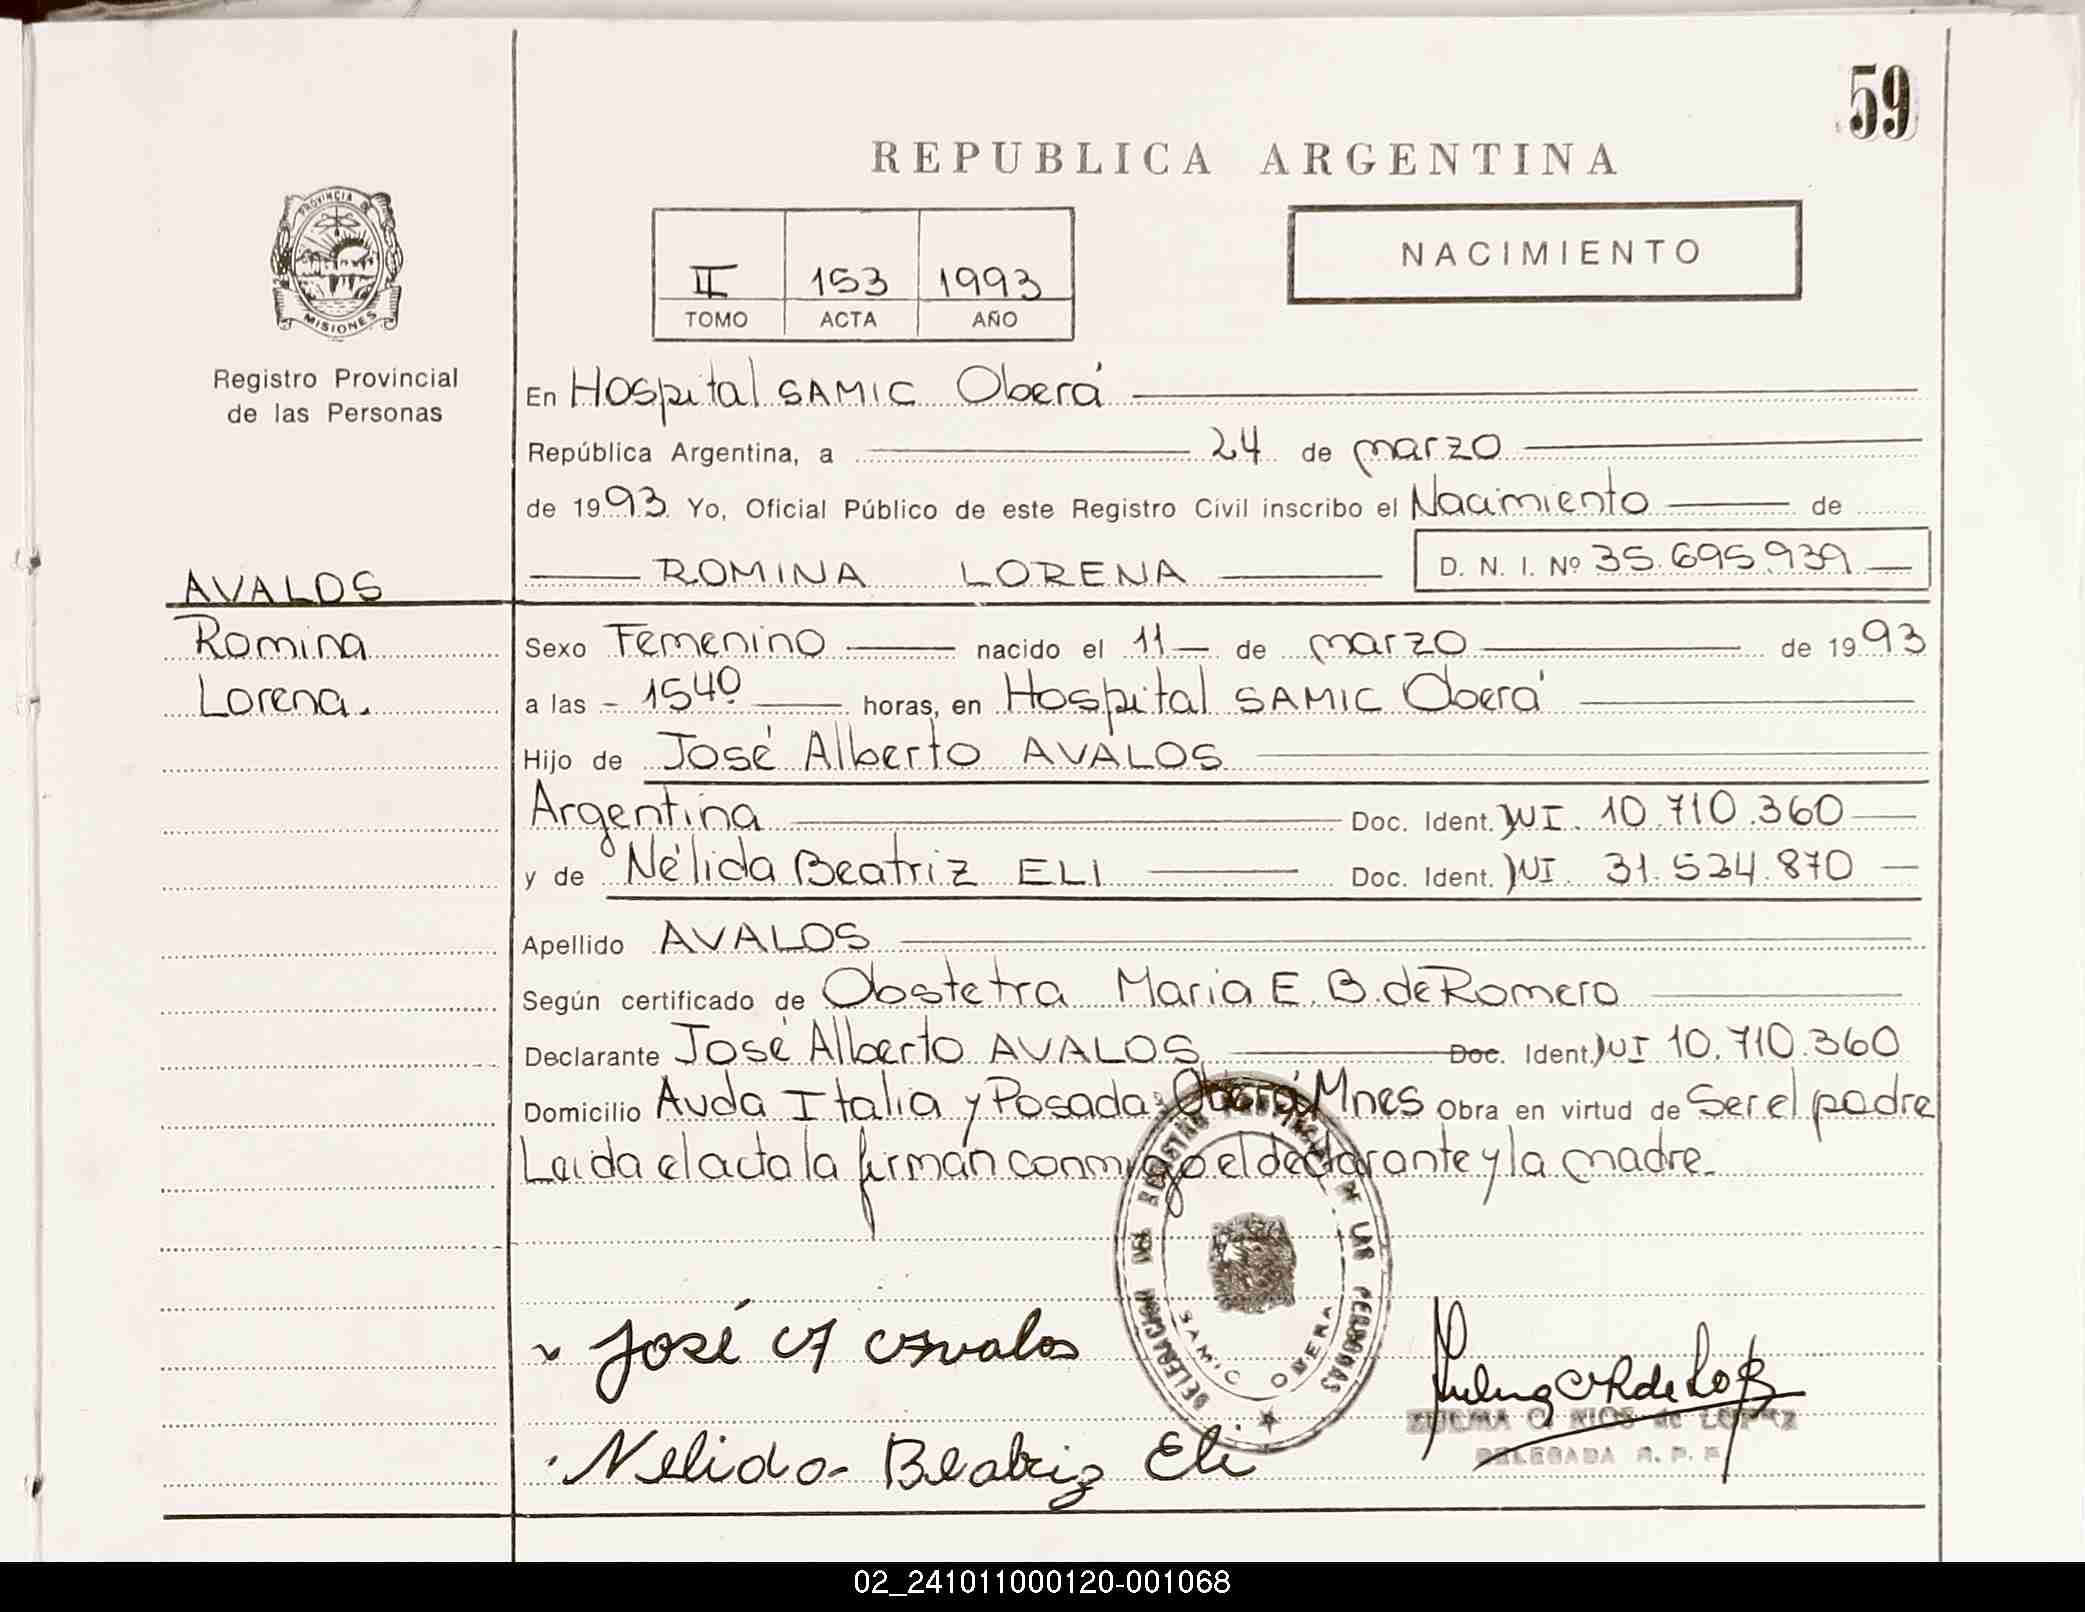 59
REPUBLICA ARGENTINA
PROVINCIA DE
MISIONES
NACIMIENTO
II 153 1993
TOMO ACTA AÑO
Registro Provincial
de las Personas
En Hospital SAMIC Oberá
República Argentina, a 24 de marzo
de 1993 Yo, Oficial Público de este Registro Civil inscribo el Nacimiento de
ROMINA LORENA D. N. I. Nº 35.695.939
AVALOS
Romina
Lorena.
Sexo Femenino nacido el 11 de marzo de 1993
a las 15 40 horas, en Hospital SAMIC Oberá
Hijo de José Alberto AVALOS
Argentina Doc. Ident. 10.710.360
y de Nélida Beatriz ELI Doc. Ident. 31.534.870
Apellido AVALOS
Según certificado de Obstetra Maria E. B. de Romero
Declarante José Alberto AVALOS Doc. Ident. 10.710.360
Domicilio Avda Italia y Posadas Oberá Mnes Obra en virtud de Ser el padre
Leída el acta la firman conmigo el declarante y la madre.
DELEGACION DEL REGISTRO PROVINCIAL DE LAS PERSONAS
SAMIC OBERA
José A Avalos
Nelida Beatriz Eli
ZULMA C. RIOS de LOPEZ
DELEGADA R. P. P.
02_241011000120-001068